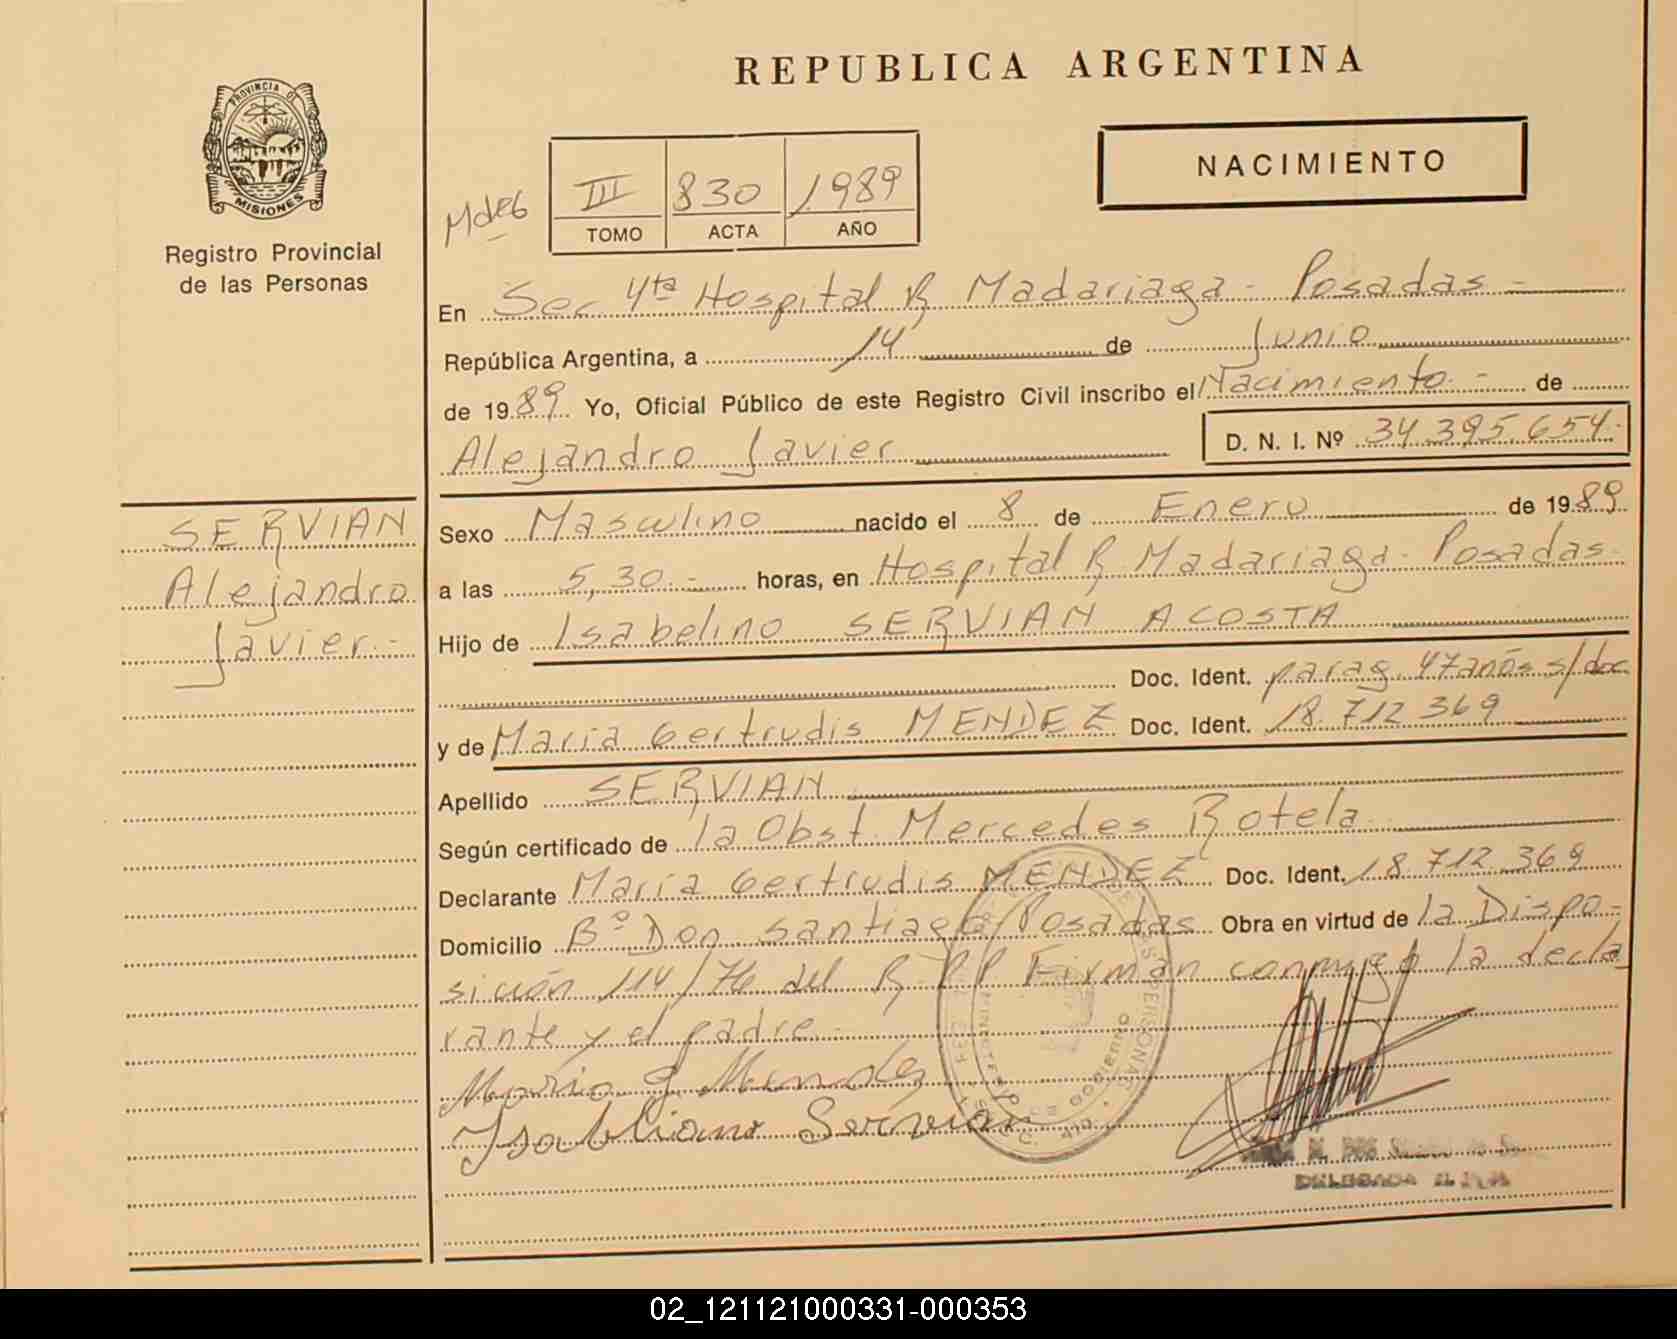 REPUBLICA ARGENTINA
PROVINCIA DE
MISIONES
Registro Provincial
de las Personas
NACIMIENTO
III 830 1989
TOMO ACTA AÑO
En Sec 4ta Hospital R Madariaga - Posadas -
República Argentina, a 14 de Junio
de 1989. Yo, Oficial Público de este Registro Civil inscribo el Nacimiento - de
Alejandro Javier D. N. I. Nº 34.395.654.
SERVIAN
Alejandro
Javier -
Sexo Masculino nacido el 8 de Enero de 1989
a las 5,30 - horas, en Hospital R Madariaga - Posadas -
Hijo de Isabelino SERVIAN ACOSTA
Doc. Ident. parag. 47 años s/doc
y de Maria Gertrudis MENDEZ Doc. Ident. 18.712.369
Apellido SERVIAN
Según certificado de la Obst. Mercedes Rotela
Declarante Maria Gertrudis MENDEZ Doc. Ident. 18.712.369
Domicilio Bº Don Santiago/Posadas Obra en virtud de la Dispo-
sición 114/76 del R.P.P Firman conmigo la decla
rante y el padre.
Maria G Mendez
Servian
DELEGADA
02_121121000331-000353